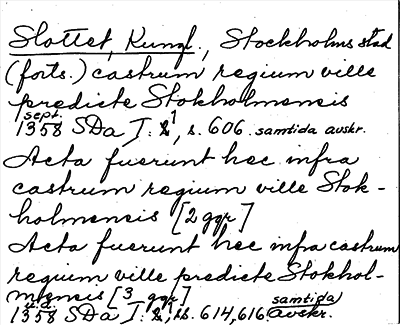 Slottet, Kungl., Stockholms stad
(forts.) castrum regium ville
predicte Stokholmensis
sept.
1358 SDa I: 1, s. 606. samtida avskr.
Acta fuerunt hec infra
castrum regium ville Stok-
holmensis [2 ggr]
Acta fuerunt hec infra castrum
regium ville predicte Stokhol-
mensis [3 ggr]
1358 SDa I: 1, ss. 614, 616 samtida avskr.